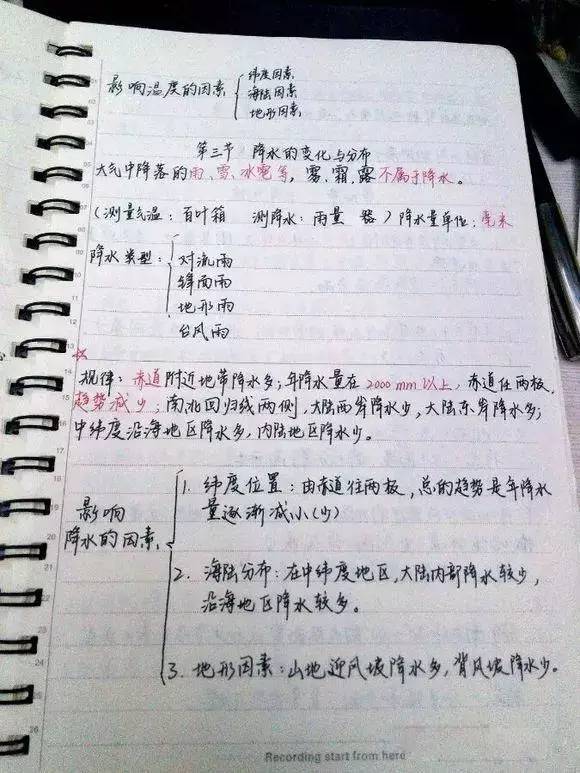 影响温度的因素
纬度因素
海陆因素
地形因素
第三节 降水的变化与分布
大气中降落的雨、雪、冰雹等，雾、霜、露不属于降水。
(测量气温：百叶箱 测降水：雨量 器) 降水量单位：毫米
降水类型：
对流雨
锋面雨
地形雨
台风雨
规律：赤道附近地带降水多；年降水量在2000mm以上，赤道往两极，
趋势减少；南北回归线两侧，大陆西岸降水少，大陆东岸降水多；
中纬度沿海地区降水多，内陆地区降水少。
影响
降水的因素
1. 纬度位置：由赤道往两极，总的趋势是年降水
量逐渐减小(少)
2. 海陆分布：在中纬度地区，大陆内部降水较少，
沿海地区降水较多。
3. 地形因素：山地迎风坡降水多，背风坡降水少。
Recording start from here